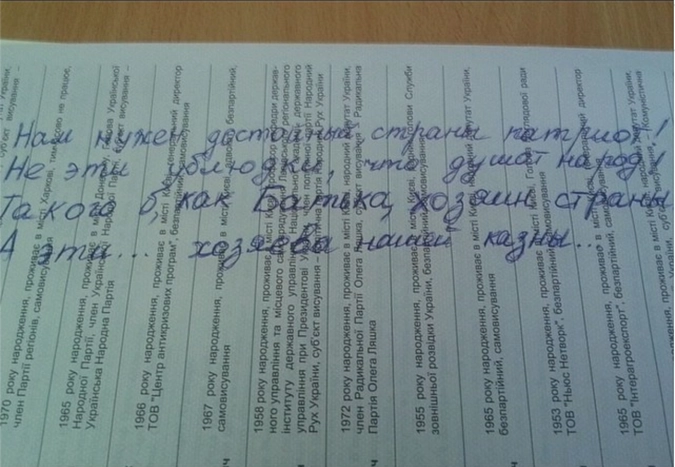 Нам нужен достойный страны патриот!
Не эти ублюдки, что душат народ!
Такого б, как Батька, хозяин страны
А эти... хозяева нашей казны...
1970 року народження, проживає в місті Харкові, тимчасово не працює,
член Партії регіонів, самовисування
1965 року народження, проживає в місті
Народної Партії, член Української Народної Партії, суб'єкт висування –
Українська Народна Партія
1966 року народження, проживає в місті директор
ТОВ "Центр антикризових програм", безпартійний, самовисування
1967 року народження, проживає в місті Києві, безпартійний,
самовисування
1958 року народження, проживає в місті
ного управління та місцевого самоврядування регіонального
інституту державного управління державного
управління при Президентові України, член політичної партії Народний
Рух України, суб'єкт висування – політична партія Народний Рух України
1972 року народження, проживає в місті Києві, народний депутат України,
член Радикальної Партії Олега Ляшка, суб'єкт висування – Радикальна
Партія Олега Ляшка
1955 року народження, проживає в місті Києві, Голови Служби
зовнішньої розвідки України, безпартійний, самовисування
1965 року народження, проживає в місті Києві, народний депутат України,
безпартійний, самовисування
1953 року народження, проживає в місті Києві, Голова Наглядової ради
ТОВ "Ньюс Нетворк", безпартійний, самовисування
1965 року народження, проживає в місті директор
ТОВ "Інтерагроекспорт", безпартійний, самовисування